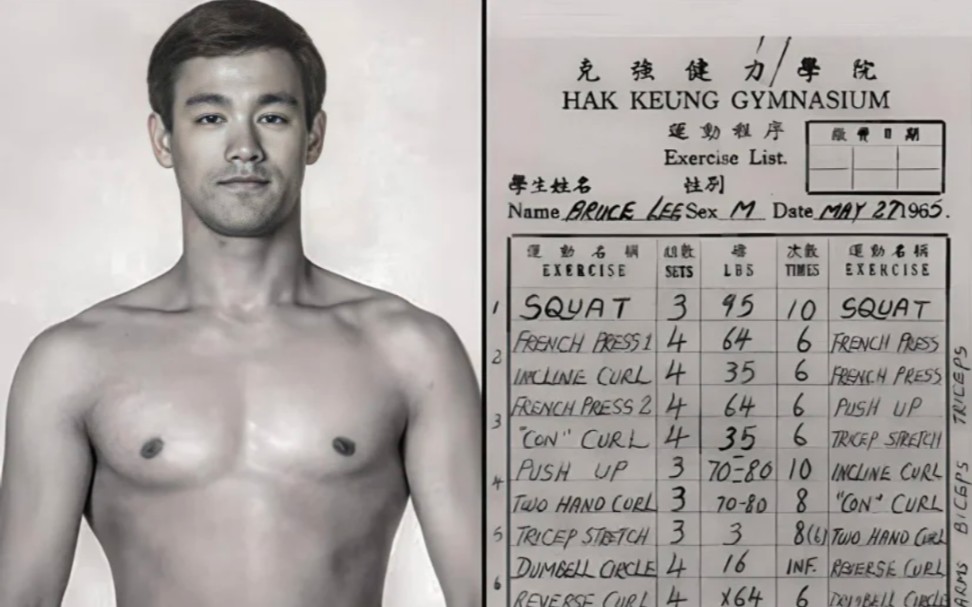 克強健力學院
HAK KEUNG GYMNASIUM
運動程序
Exercise List.
繳費日期
學生姓名 性別
Name BRUCE LEE Sex M Date MAY 27 1965.
運動名稱 組數 磅 次數 運動名稱
EXERCISE SETS LBS TIMES EXERCISE
1 SQUAT 3 95 10 SQUAT
2 FRENCH PRESS 1 4 64 6 FRENCH PRESS
INCLINE CURL 4 35 6 FRENCH PRESS
3 FRENCH PRESS 2 4 64 6 PUSH UP
"CON" CURL 4 35 6 TRICEP STRETCH
4 PUSH UP 3 70-80 10 INCLINE CURL
TWO HAND CURL 3 70-80 8 "CON" CURL
5 TRICEP STRETCH 3 3 8(6) TWO HAND CURL
DUMBELL CIRCLE 4 16 INF. REVERSE CURL
6 REVERSE CURL 4 X64 6 DUMBELL CIRCLE
TRICEPS
BICEPS
ARMS